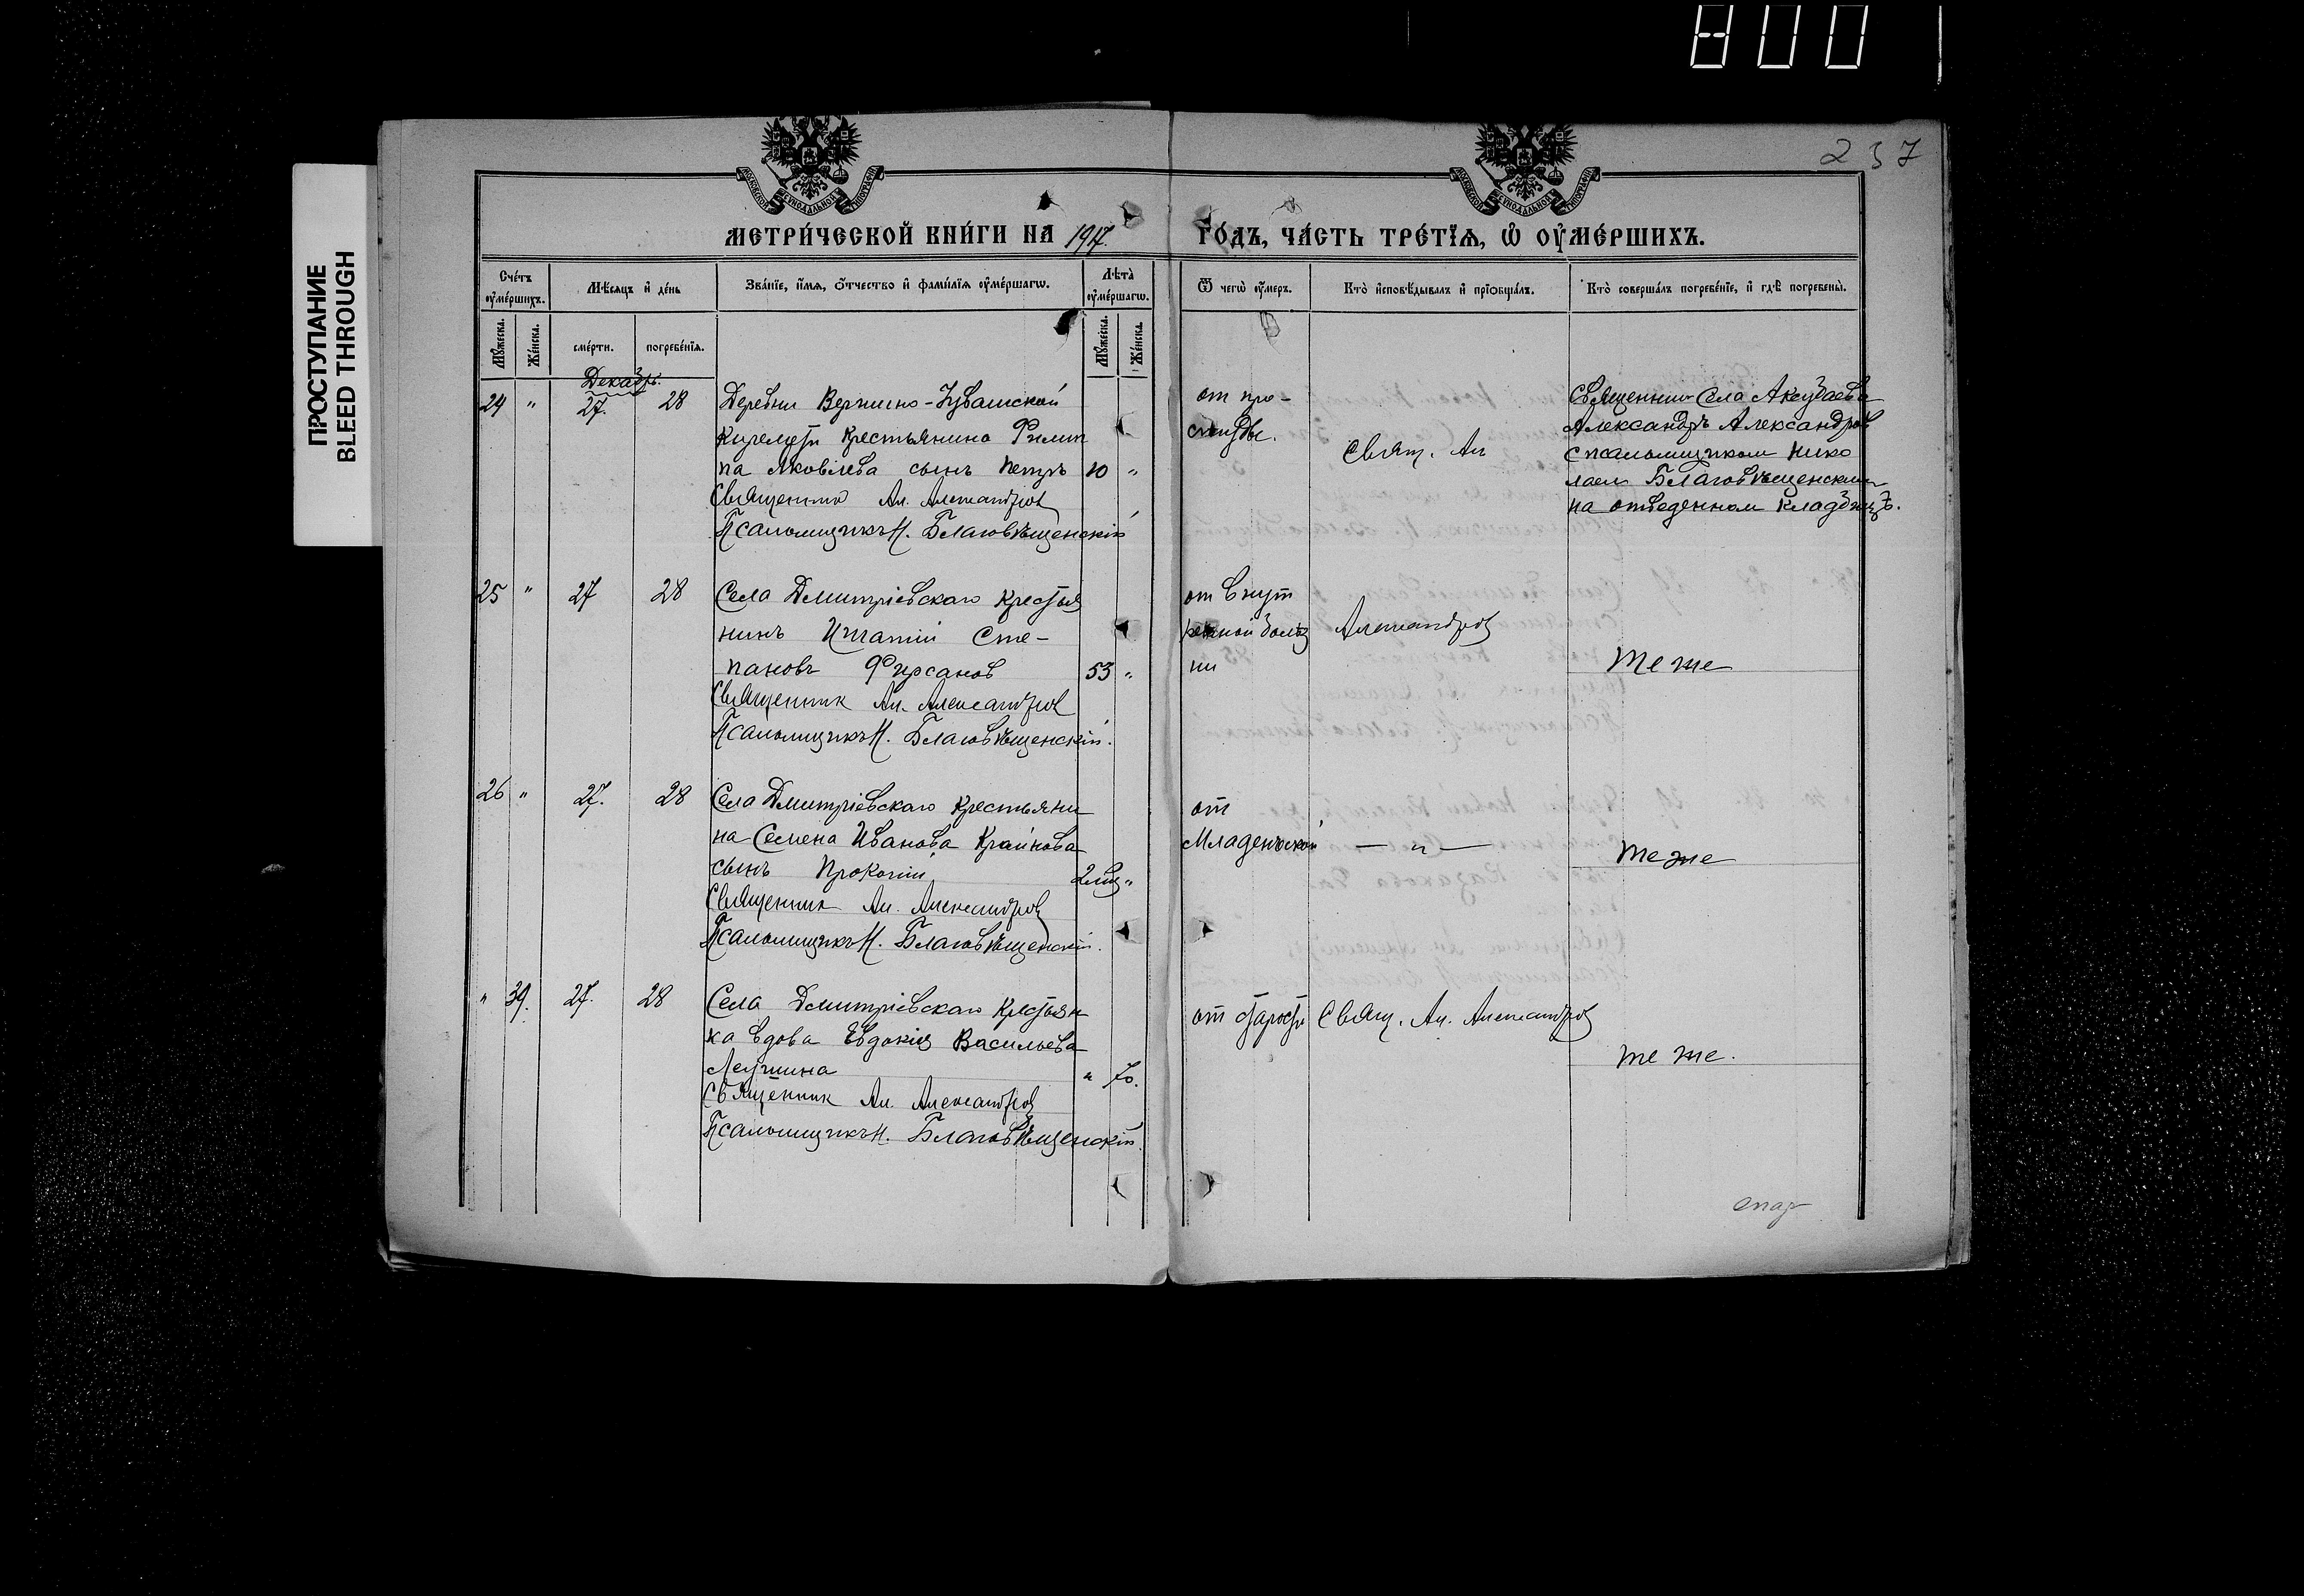 800
ПРОСТУПАНИЕ
BLEED THROUGH
237
МЕТРИ́ЧЕСКОЙ КНИ́ГИ НА 1917.
ГО́ДЪ, ЧА́СТЬ ТРЕ́ТЇѦ, Ѡ ОУ҆МЕ́РШИХЪ.
Сче́тъ оу҆ме́ршихъ.
Мѣ́сяцъ и҆ де́нь
Зва́нїе, и҆́мѧ, ѻ҆́тчество и҆ фами́лїѧ оу҆ме́ршагѡ.
Лѣта̀ оу҆ме́ршагѡ.
Ѿ чегѡ̀ оу҆́меръ.
Кто̀ и҆сповѣ́дывалъ и҆ прїѡбща́лъ.
Кто̀ соверша́лъ погребе́нїе, и҆ гдѣ̀ погребены̀.
Мꙋ́жеска.
Же́нска.
сме́рти.
погребе́нїѧ.
Мꙋ́жеска.
Же́нска.
Декабрь.
24 " 27. 28 Деревни Верхнено-Чувашской
Киремети крестьянина Филип
па Яковлева сынъ Петръ 10 "
Священник Ал. Александров
Псаломщикъ Н. Благовѣщенскій
от про-
студы.
Свящ. Ал
Священник села Аксубаева
Александръ Александров
с псаломщиком Нико
лаем Благовѣщенским
на отведенном кладбищѣ.
25 " 27 28 Села Дмитріевскаго крестья
нинъ Игнатій Сте-
пановъ Фирсанов 53 "
Священник Ал. Александров
Псаломщикъ Н. Благовѣщенскій.
от внут
ренной болѣз
ни
Александров
те же
26 " 27. 28 Села Дмитріевскаго крестьяни
на Семена Иванова Крайнова
сынъ Прокопій 2 мѣс "
Священник Ал. Александров
Псаломщикъ Н. Благовѣщенскій.
от
младенческой
— " —
те же
" 39. 27. 28 Села Дмитріевскаго крестьян
ка вдова Евдокія Васильева
" 70.
Священник Ал. Александров
Псаломщикъ Н. Благовѣщенскій.
от старости
Свящ. Ал. Александров
те же.